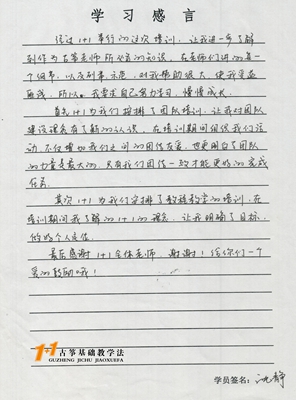 学习感言
经过1+1举行的这次培训，让我进一步了解
到作为古筝老师所必备的知识。在老师们讲的每一
个细节，以及形事示范，对我帮助很大，使我受益
匪浅，所以，我要求自己努力学习，慢慢成长。
首先1+1为我们安排了团队培训，让我对团队
建设更有了新的认识，在培训期间组织我们活
动，不仅增加我们之间的团结友爱，也更明白了团队
的力量是最大的，只有我们团结一致才能更好的完成
任务。
其次1+1为我们安排了教程教学的培训，在
培训期间我了解的1+1的理念，让我明确了目标，
做好个人定位。
最后感谢1+1全体老师，谢谢！给你们一个
爱的鼓励哦！
1+1 古筝基础教学法
GUZHENG JICHU JIAOXUEFA
学员签名：沈静